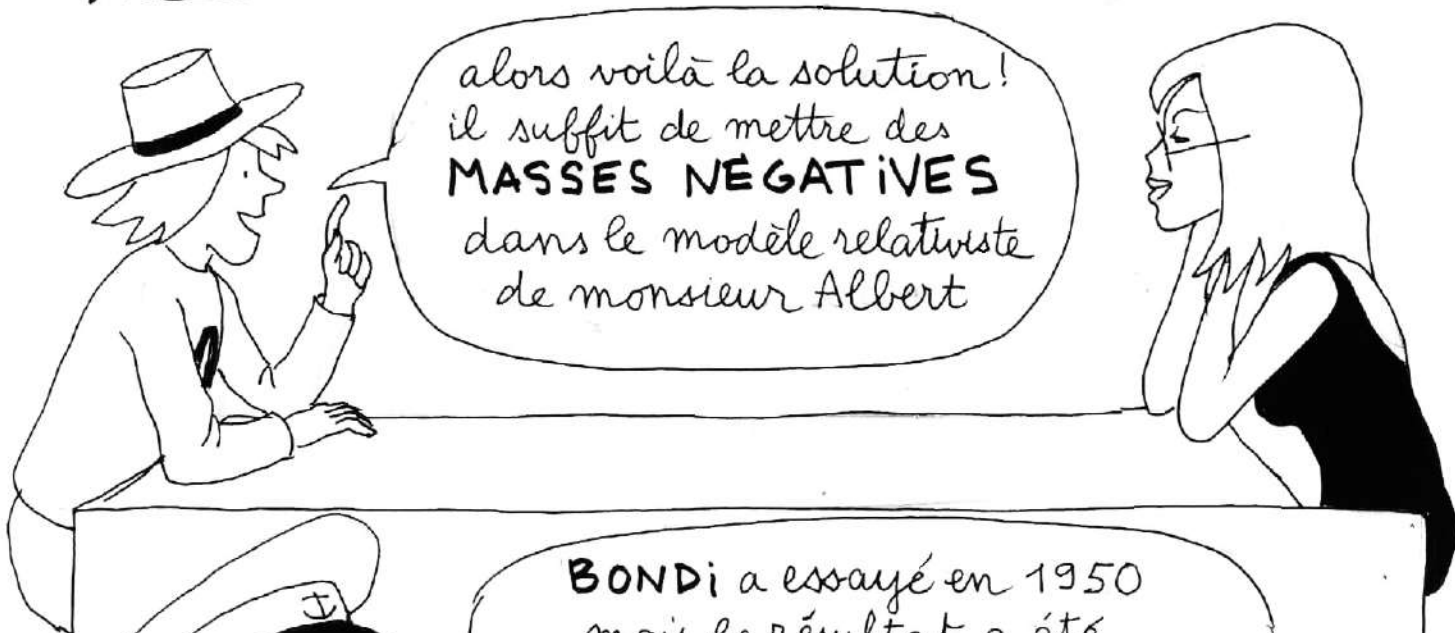 alors voilà la solution!
il suffit de mettre des
MASSES NÉGATiVES
dans le modèle relativiste
de monsieur Albert
BONDi a essayé en 1950
mais le résultat a été